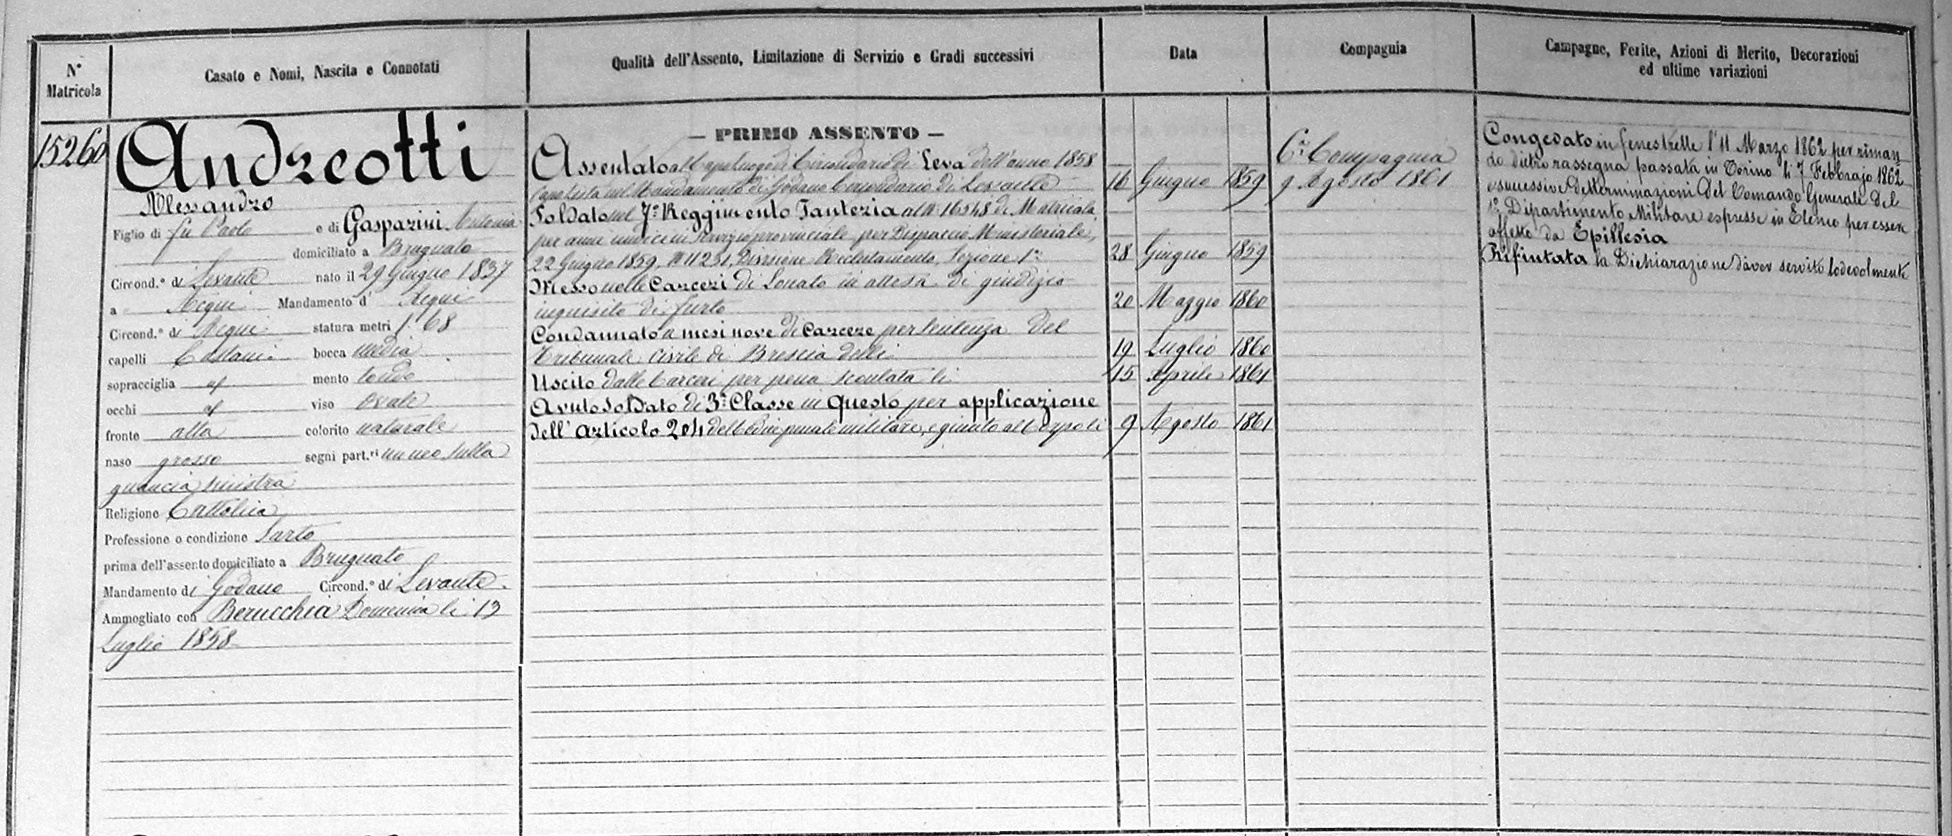 N° Matricola
Casato e Nomi, Nascita e Connotati
Qualità dell'Assento, Limitazione di Servizio e Gradi successivi
Data
Compagnia
Campagne, Ferite, Azioni di Merito, Decorazioni
ed ultime variazioni
15260
Andreotti
Alessandro
Figlio di fù Paolo e di Gasparini Antonia
domiciliato a Brugnato
Circond.° di Levante nato il 29 Giugno 1837
a Acqui Mandamento d' Acqui
Circond.° di Acqui statura metri 1. 68
capelli Castani bocca media
sopracciglia id mento tondo
occhi id viso ovale
fronte alta colorito naturale
naso grosso segni part.ri un neo sulla
guancia sinistra
Religione Cattolica
Professione o condizione Sarto
prima dell'assento domiciliato a Brugnato
Mandamento di Godano Circond.° di Levante
Ammogliato con Berucchia Domenica li 13
Luglio 1858
— PRIMO ASSENTO —
Assentato al Capoluogo di Circondario di Leva dell'anno 1858
Capolista nel Mandamento di Godano Circondario di Levante 16 Giugno 1859
Soldato nel 7° Reggimento Fanteria al N° 16548 di Matricola,
per anni undici in servizio provinciale per Dispaccio Ministeriale,
22 Giugno 1859, N° 11251, Divisione Reclutamento, Sezione 1ª 28 Giugno 1859
Messo nelle Carceri di Lonato in attesa di giudizio
inquisito di furto 20 Maggio 1860
Condannato a mesi nove di Carcere per sentenza del
Tribunale Civile di Brescia delli 19 Luglio 1860
Uscito dalle Carceri per pena scontata li 15 Aprile 1861
Avuto Soldato di 3ª Classe in Questo per applicazione
dell'Articolo 204 del Codice penale militare, e giunto al Corpo li 9 Agosto 1861
6ª Compagnia
9 Agosto 1861
Congedato in fenestrelle l'11 Marzo 1862 per riman
do dietro rassegna passata in Torino li 7 Febbrajo 1862
e successive determinazioni del Comando Generale del
1° Dipartimento Militare espresse in Elenco per essere
affetto da Epillesia
Rifiutata la Dichiarazione d'aver servito lodevolmente